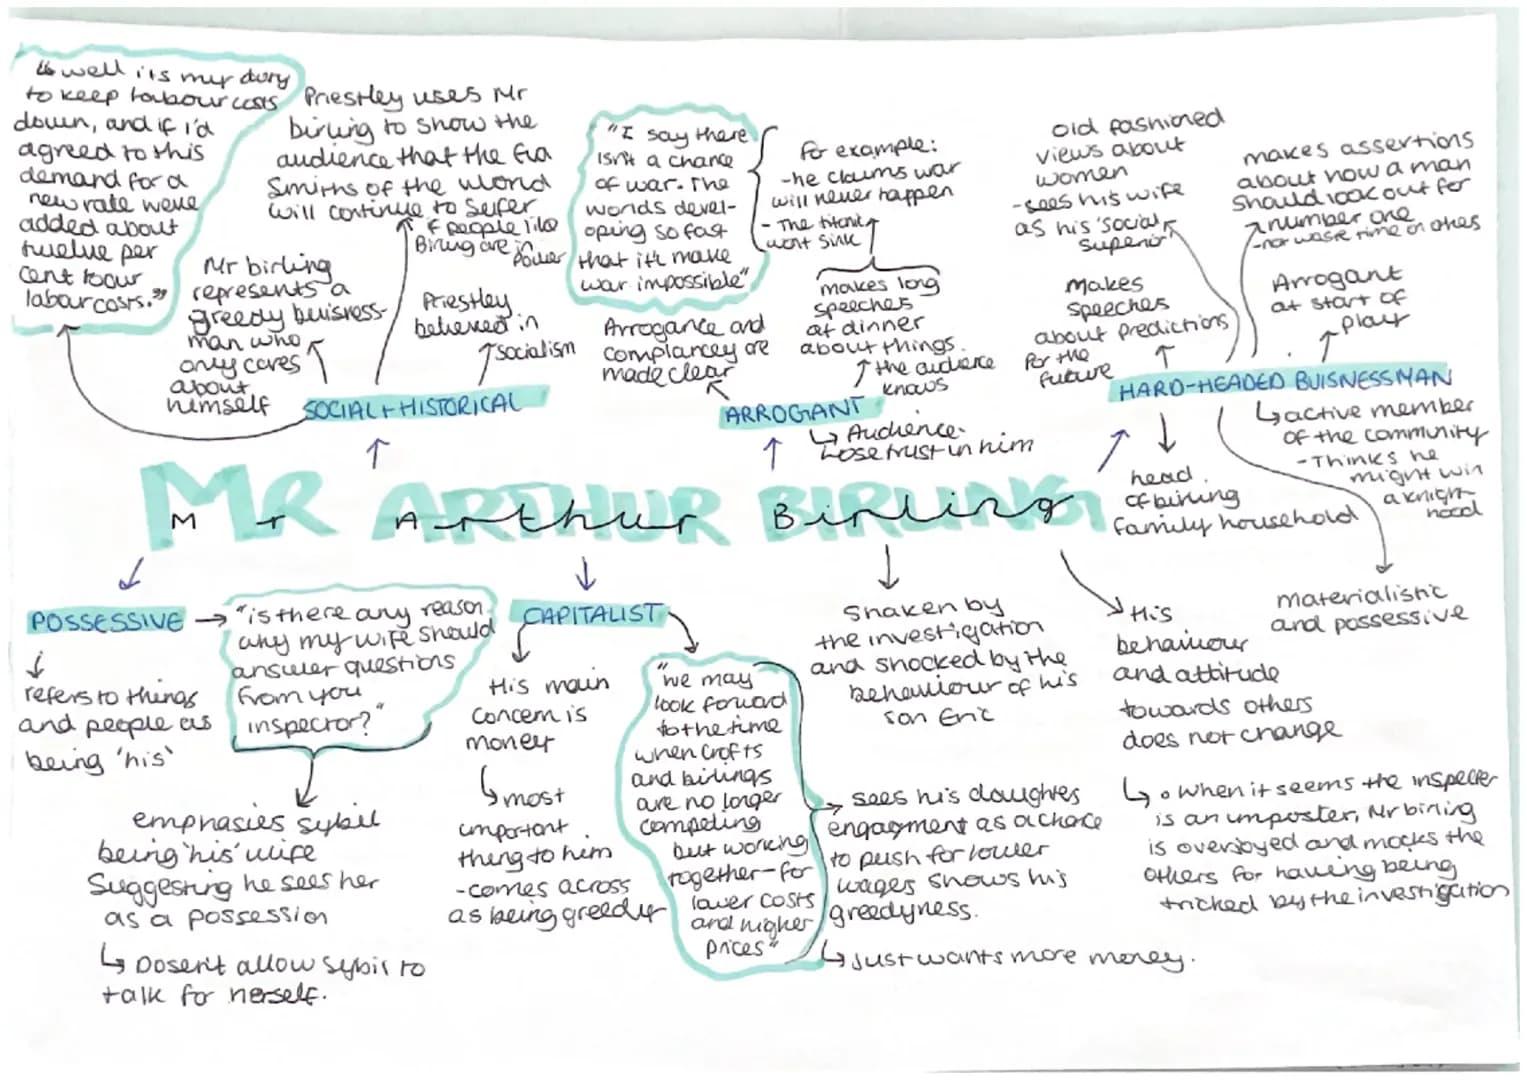 "well its my duty
to keep labour costs
down, and if i'd
agreed to this
demand for a
new rate weve
added about
twelve per
cent to our
labour costs."
Priestley uses Mr
birling to show the
audience that the Eva
Smiths of the world
will continue to suffer
if people like
Birling are in
power
Mr birling
represents a
greedy buisness-
man who
only cares
about
himself
Priestley
believed in
socialism
SOCIAL + HISTORICAL
"I say there
isnt a chance
of war. The
worlds devel-
oping so fast
that it'll make
war impossible"
for example:
-he claims war
will never happen
- The titanic
wont sink
Arrogance and
complancey are
made clear
makes long
speeches
at dinner
about things
the audience
knows
ARROGANT
Audience
lose trust in him
old fashioned
views about
women
-sees his wife
as his 'social
superior'
makes assertions
about how a man
should look out for
number one
-not waste time on others
makes
speeches
about predictions
for the
future
Arrogant
at start of
play
HARD-HEADED BUISNESSMAN
active member
of the community
-Thinks he
might win
a knight-
hood
head
of birling
family household
materialistic
and possessive
MR ARTHUR BIRLING
Mr Arthur Birling
POSSESSIVE
refers to things
and people as
being 'his'
"is there any reason
why my wife should
answer questions
from you
inspector?"
emphasies sybil
being 'his' wife
Suggesting he sees her
as a possession
Dosen't allow sybil to
talk for herself.
CAPITALIST
His main
concern is
money
most
important
thing to him
-comes across
as being greedy
"we may
look forward
to the time
when crofts
and birlings
are no longer
competing
but working
together - for
lower costs
and higher
prices"
sees his daughters
engagment as a chance
to push for lower
wages shows his
greedyness.
Just wants more money.
Shaken by
the investigation
and shocked by the
behaviour of his
son Eric
His
behaviour
and attitude
towards others
does not change
• When it seems the inspecter
is an imposter, Mr birling
is overjoyed and mocks the
others for having being
tricked by the investigation